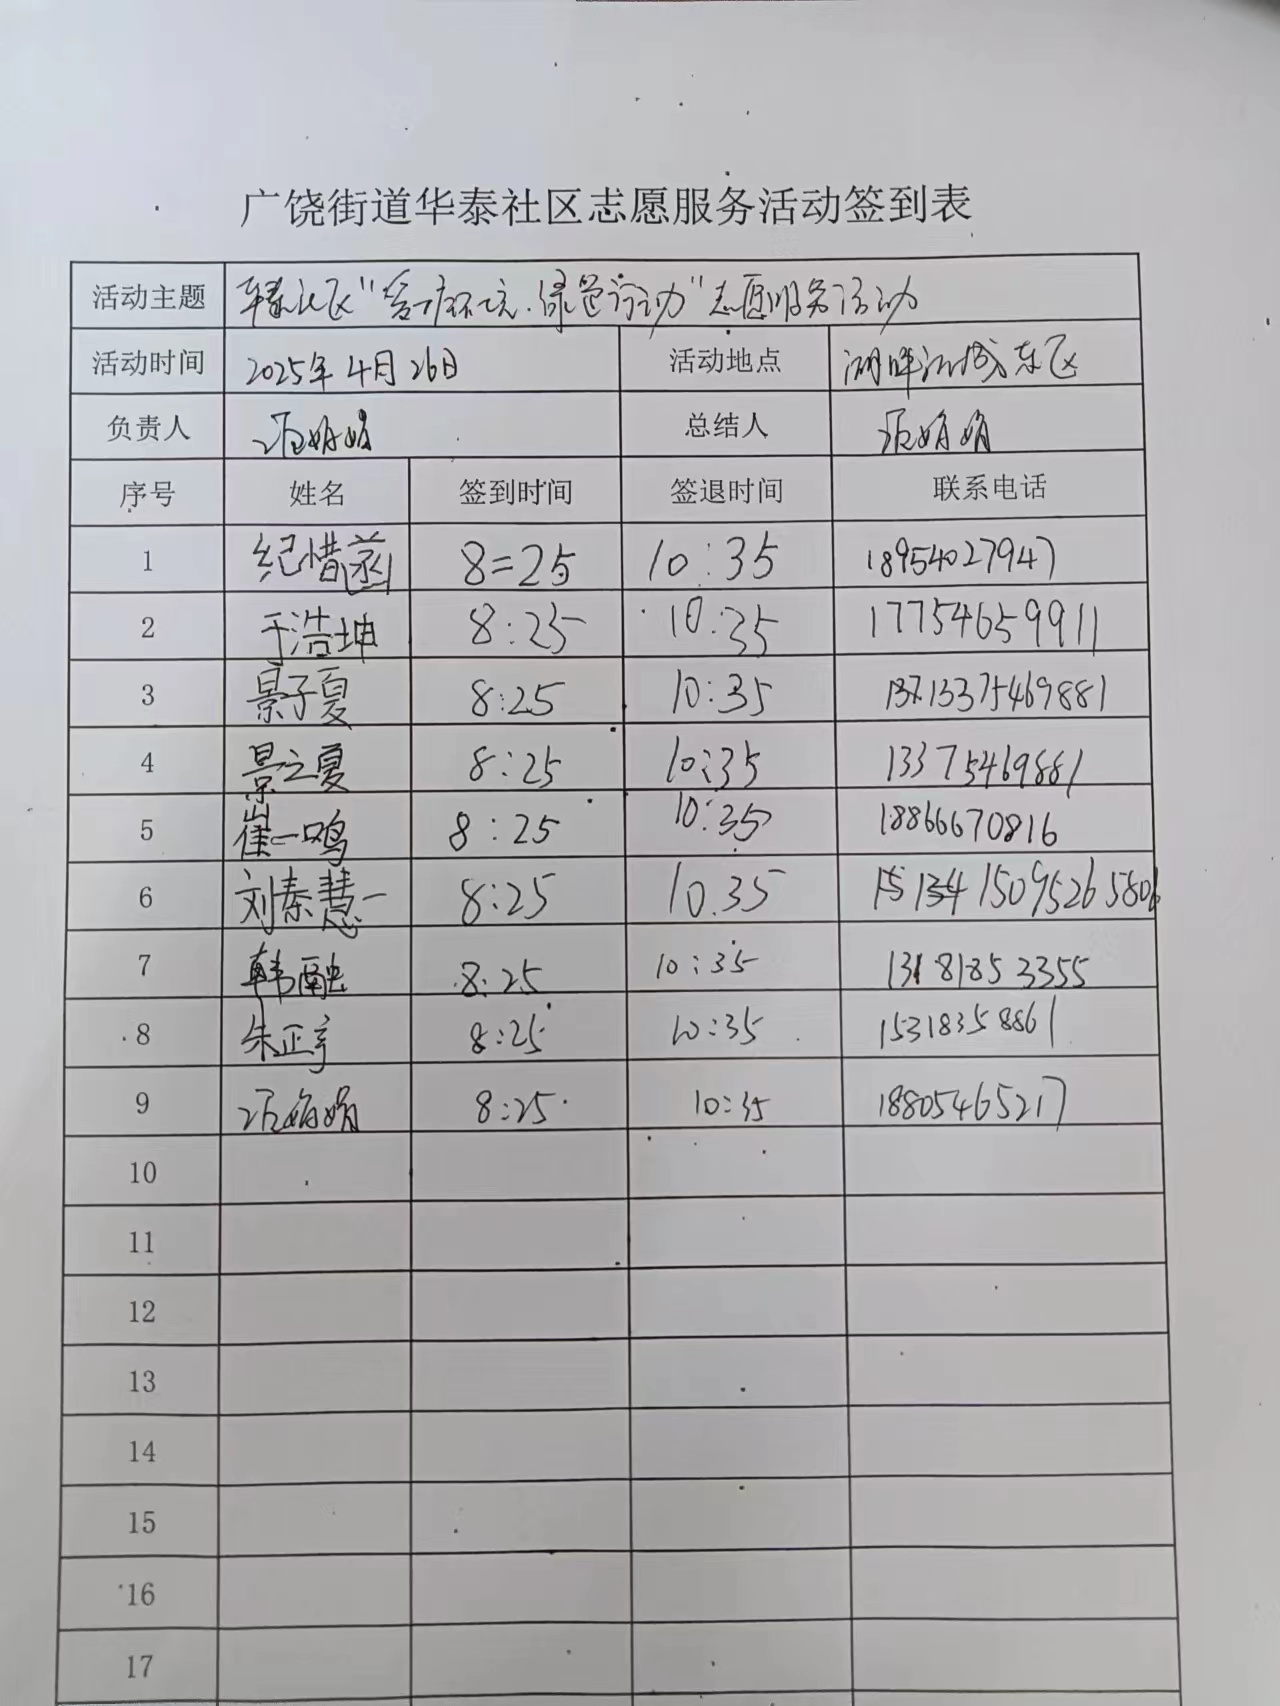 广饶街道华泰社区志愿服务活动签到表
活动主题 华泰社区“ 环境.绿色行动”志愿服务活动
活动时间 2025年4月26日 活动地点 湖畔 城东区
负责人 娟娟 总结人 娟娟
序号 姓名 签到时间 签退时间 联系电话
1 纪惜菡 8=25 10:35 18954027947
2 于浩坤 8:25 10:35 17754659911
3 景子夏 8:25 10:35 13375469881
4 景之夏 8:25 10:35 13375469881
5 崔一鸣 8:25 10:35 18866670816
6 刘秦慧一 8:25 10.35 15095265806
7 韩融 8:25 10:35 13181853355
8 朱正亨 8:25 10:35 15318358861
9 娟娟 8:25 10:35 18805465217
10
11
12
13
14
15
16
17